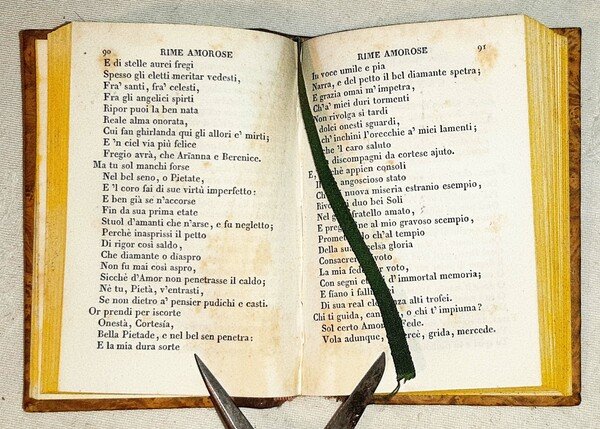 90
RIME AMOROSE
E di stelle aurei fregi
Spesso gli eletti meritar vedesti,
Fra' santi, fra' celesti,
Fra gli angelici spirti
Ripor puoi la ben nata
Reale alma onorata,
Cui fan ghirlanda qui gli allori e' mirti;
E 'n ciel via più felice
Fregio avrà, che Arianna e Berenice.
Ma tu sol manchi forse
Nel bel seno, o Pietate,
E 'l coro fai di sue virtù imperfetto:
E ben già se n'accorse
Fin da sua prima etate
Stuol d'amanti che n'arse, e fu negletto;
Perchè inasprissi il petto
Di rigor così saldo,
Che diamante o diaspro
Non fu mai così aspro,
Sicchè d'Amor non penetrasse il caldo;
Nè tu, Pietà, v'entrasti,
Se non dietro a' pensier pudichi e casti.
Or prendi per iscorte
Onestà, Cortesía,
Bella Pietade, e nel bel sen penetra:
E la mia dura sorte
RIME AMOROSE
91
In voce umile e pia
Narra, e del petto il bel diamante spetra;
E grazia omai m'impetra,
Ch'a' miei duri tormenti
Non rivolga sì tardi
dolci onesti sguardi,
ch'inchini l'orecchie a' miei lamenti;
che 'l caro saluto
discompagni da cortese ajuto.
E, chè appien consoli
angoscioso stato
nuova miseria estranio esempio,
duo bei Soli
Nel fratello amato,
E al mio gravoso scempio,
ch'al tempio
Della su celsa gloria
Consacre voto
La mia fede voto,
Con segni d'immortal memoria;
E fiano i
Di sua real za alti trofei.
Chi ti guida, can o chi t' impiuma?
Sol certo Amor Fede.
Vola adunque, ercè, grida, mercede.